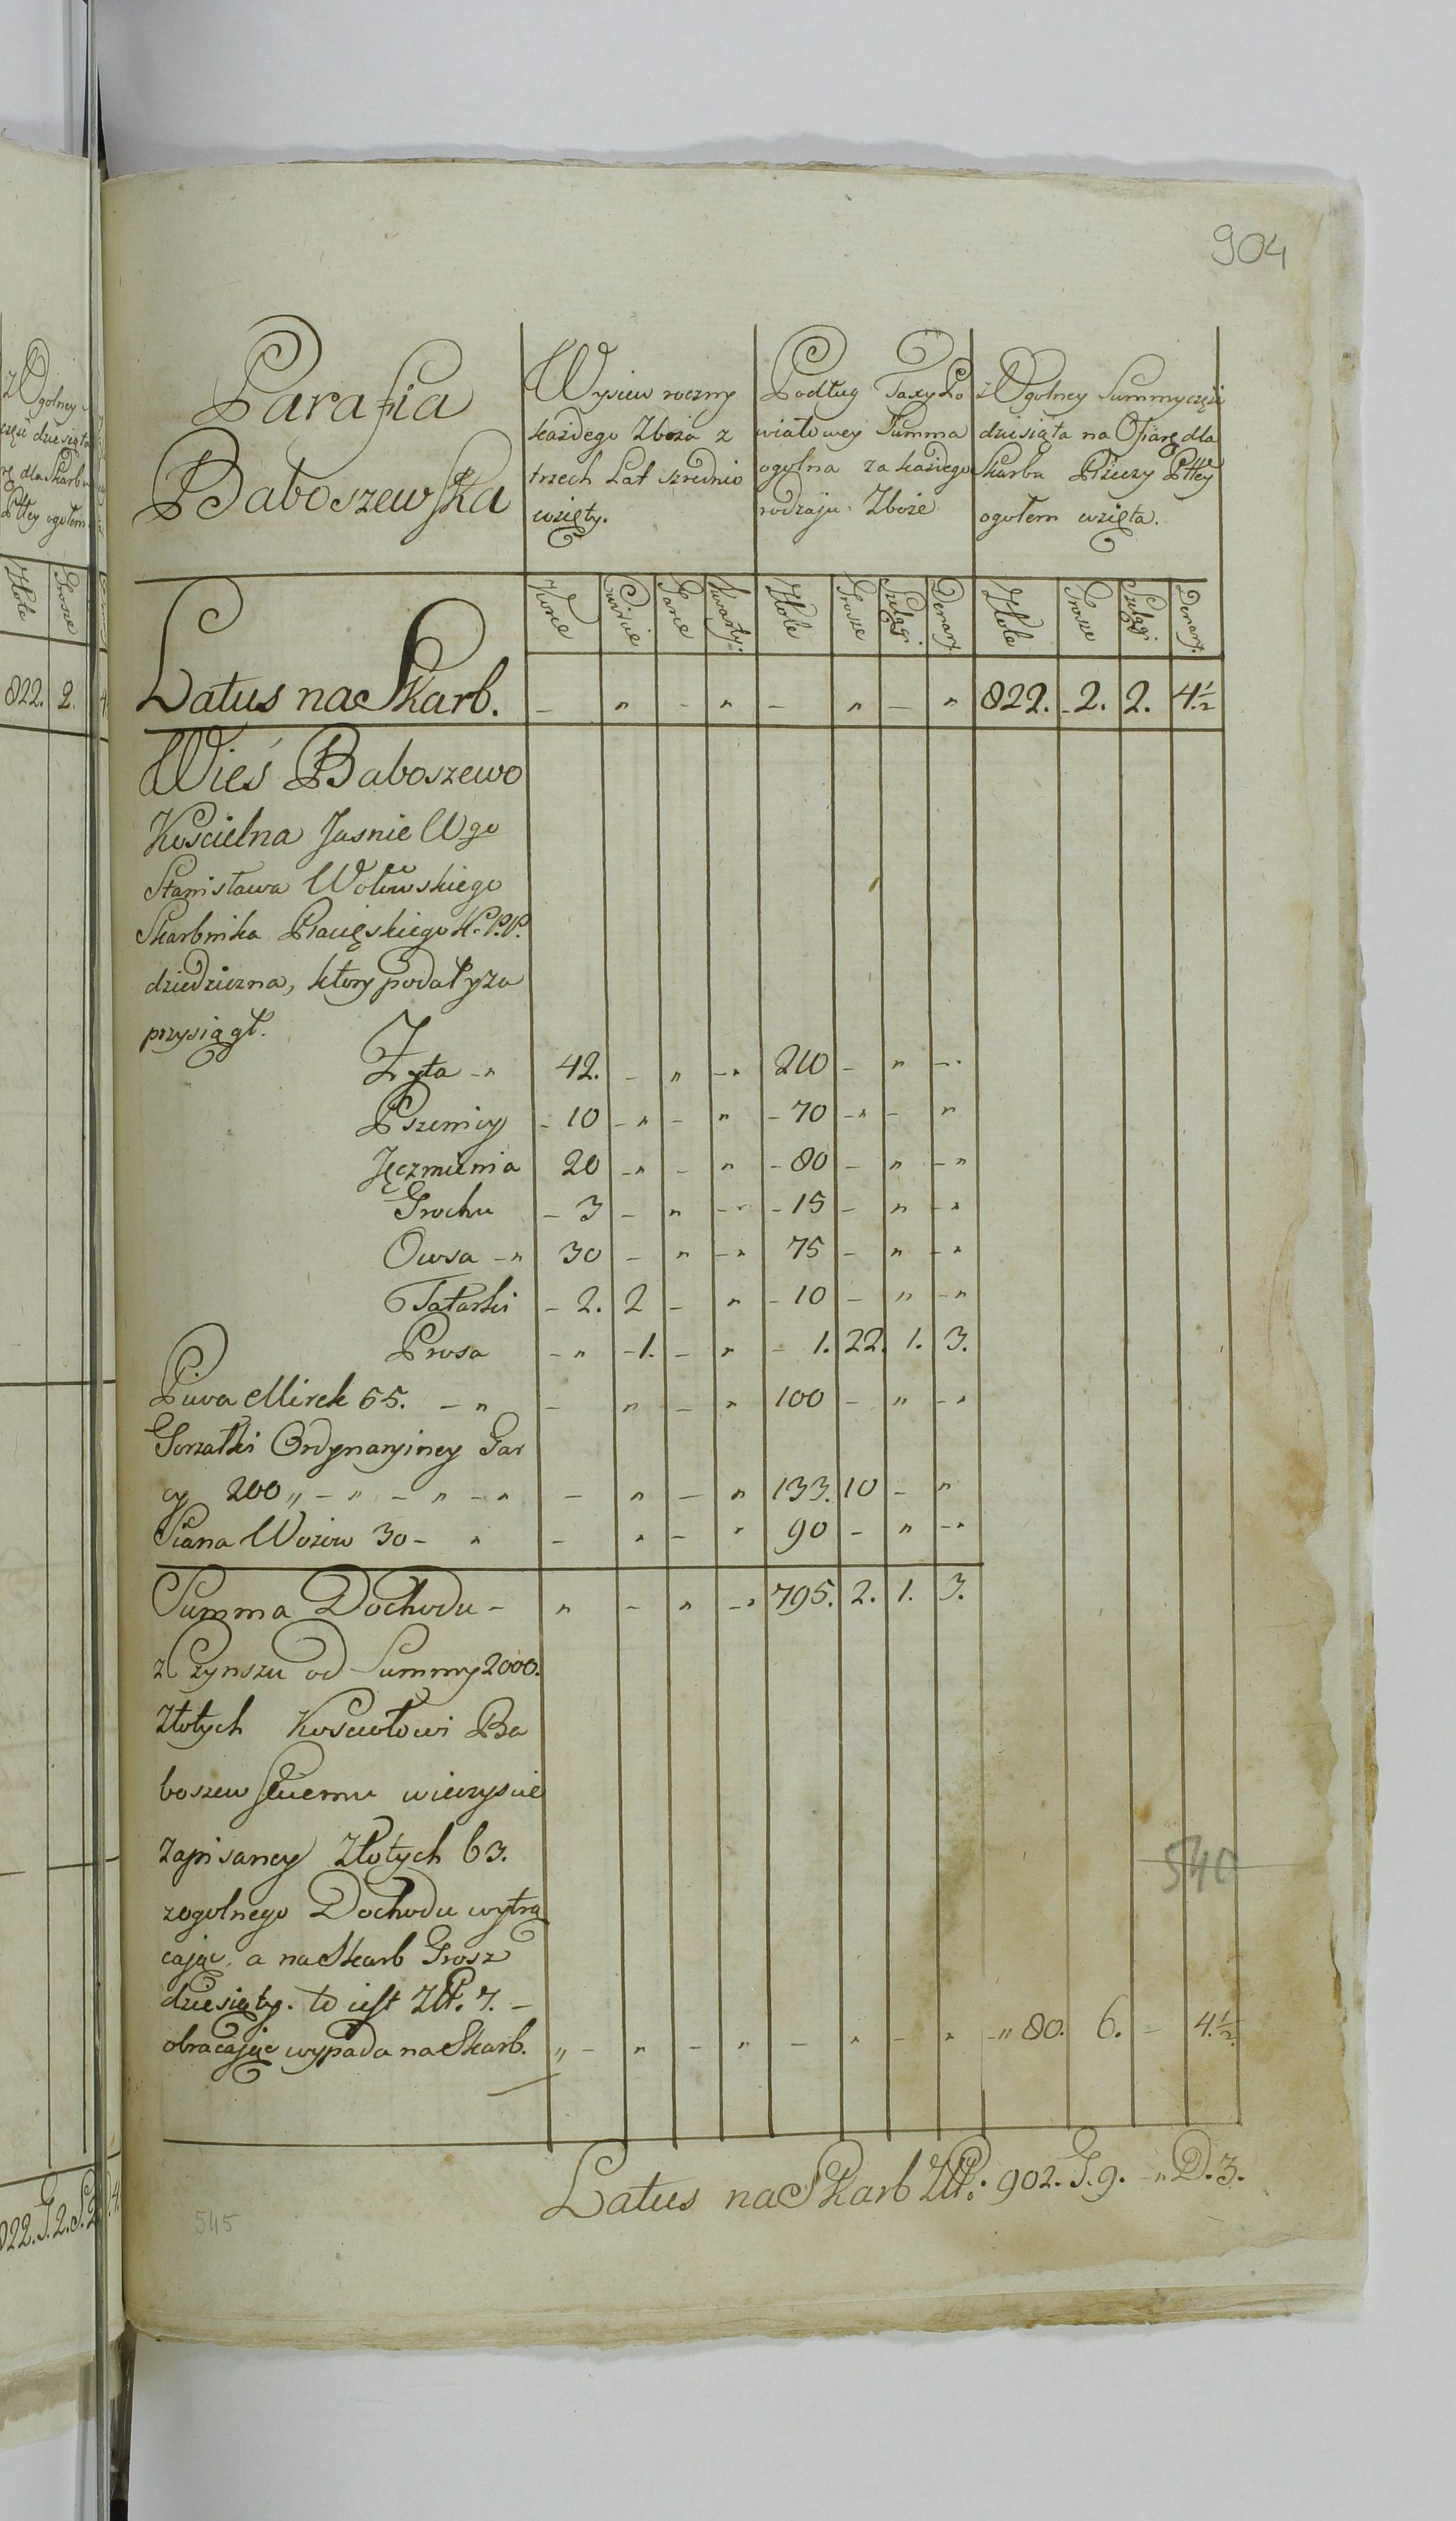 904
Parafia
Baboszewska
Wysiew roczny
każdego Zboża z
trzech Lat szrednio
wzięty.
Podług Taxy Po
wiatowey Summa
ogolna za każdego
rodzaju Zboże
z Ogolney Summy częśc
dziesiąta na Ofiarę dla
Skarbu Rzeczy Pttey
ogołem wzięta.
Korce Cwircie Garce Kwarty. Złote Grosze Szelągi. Denary. Złote Grosze Szelągi. Denary.
Latus na Skarb. – „ – „ – „ – „ 822. – 2. 2. 4.½
Wieś Baboszewo
Koscielna Jasnie Wgo
Stanisława Wołowskiego
Skarbnika K. P. P.
dziedziczna, ktory podał y za
przysiągł.
Zyta – „ 42. – „ – „ 210 – „ – „
Pszenicy – 10 – „ – „ – 70 – „ – „
Jęczmienia 20 – „ – „ – 80 – „ – „
Grochu – 3 – „ – „ – 15 – „ – „
Owsa – „ 30 – „ – „ 75 – „ – „
Tatarki – 2. 2 – „ – 10 – „ – „
Prosa – „ – 1. – „ – 1. 22. 1. 3.
Piwa Mirek 65. – „ – „ – „ 100 – „ – „
Gorzałki Ordynaryiney Gar
cy 200 „ – „ – „ – „ – „ – „ 133. 10 – „
Siana Wozow 30 – „ – „ – „ 90 – „ – „
Summa Dochodu – „ – „ – „ 795. 2. 1. 3.
z Czynszu od Summy 2000.
Złotych Kosciołowi Ba
boszewskiemu wieczyscie
zapisaney Złotych 63.
zogolnego Dochodu wytrą
caiąc, a na Skarb Grosz
dziesiąty. to iest Złł. 7. –
obracaiąc wypada na Skarb. „ – „ – „ – „ – „ – „ 80. 6. – 4.½
540
Latus na Skarb Złł. 902. G. 9. – „ D. 3.
545
z Ogolney
częśc dziesiąta
rę dla Skarbu
Pttey ogołem
Złote Grosze
822. 2.
822. G. 2. S. 2